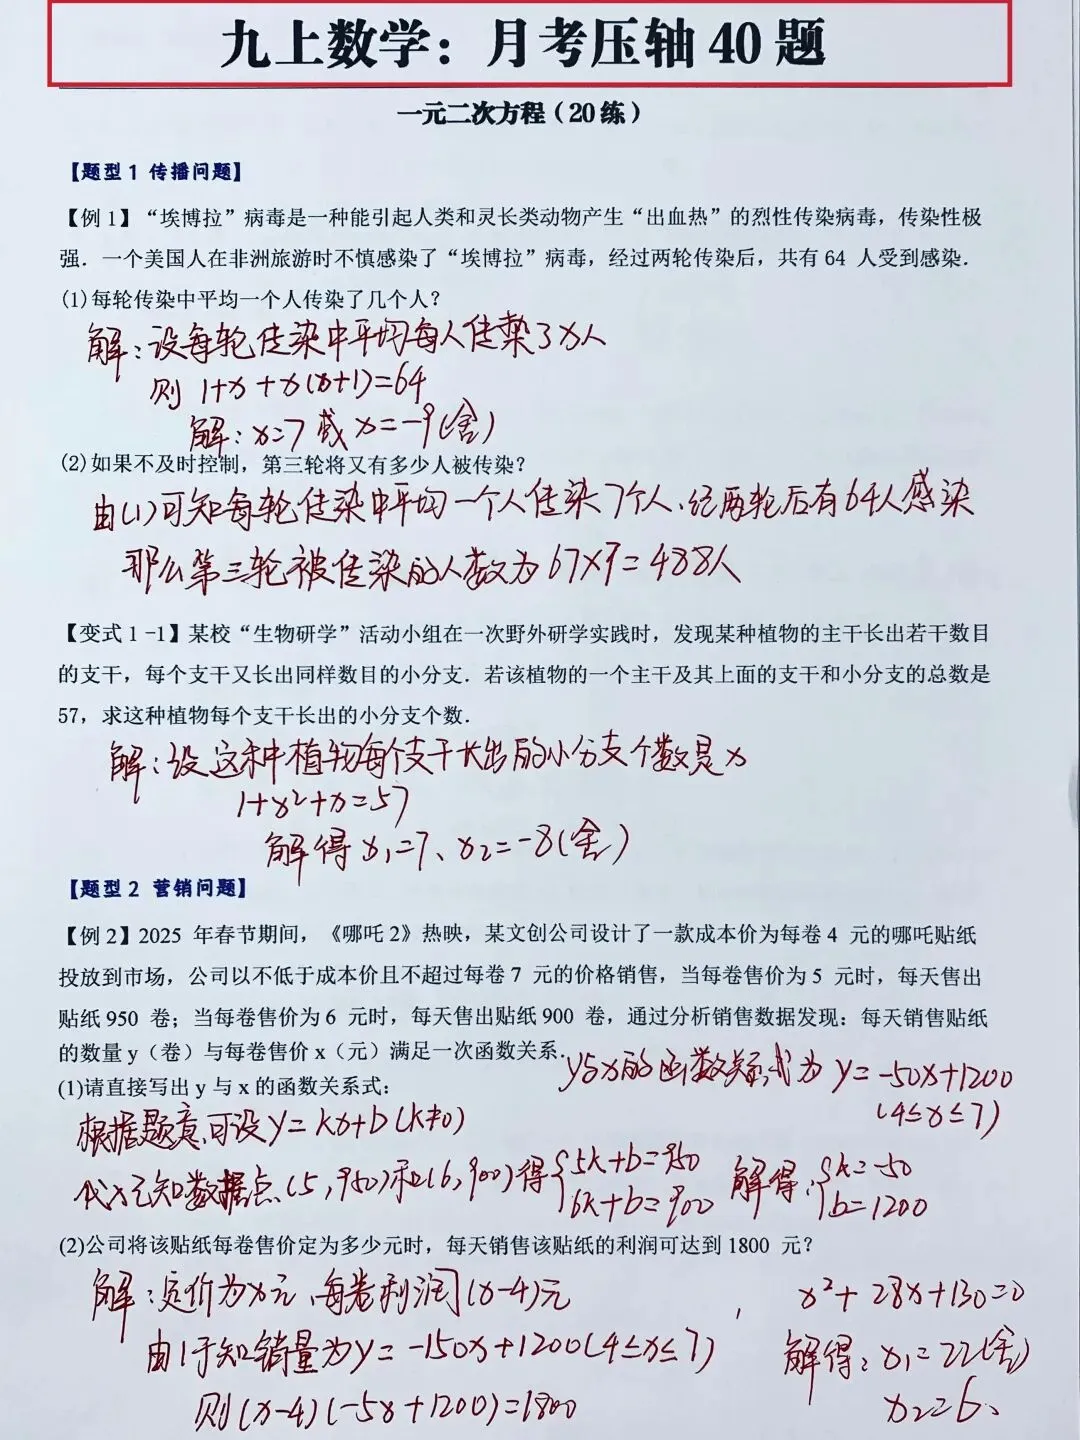 九上数学：月考压轴40题
一元二次方程（20练）
【题型1 传播问题】
【例1】“埃博拉”病毒是一种能引起人类和灵长类动物产生“出血热”的烈性传染病毒，传染性极
强．一个美国人在非洲旅游时不慎感染了“埃博拉”病毒，经过两轮传染后，共有64 人受到感染．
(1)每轮传染中平均一个人传染了几个人？
解：设每轮传染中平均每人传染了x人
则 1+x+x(x+1)=64
解：x=7或x=-9(舍)
(2)如果不及时控制，第三轮将又有多少人被传染？
由(1)可知每轮传染中平均一个人传染7个人、经两轮后有64人感染
那么第三轮被传染的人数为67×9=488人
【变式1 -1】某校“生物研学”活动小组在一次野外研学实践时，发现某种植物的主干长出若干数目
的支干，每个支干又长出同样数目的小分支．若该植物的一个主干及其上面的支干和小分支的总数是
57，求这种植物每个支干长出的小分支个数．
解：设这种植物每个支干长出的小分支个数是x
1+x²+x=57
解得x₁=7、x₂=-8(舍)
【题型2 营销问题】
【例2】2025 年春节期间，《哪吒2》热映，某文创公司设计了一款成本价为每卷4 元的哪吒贴纸
投放到市场，公司以不低于成本价且不超过每卷7 元的价格销售，当每卷售价为5 元时，每天售出
贴纸950 卷；当每卷售价为6 元时，每天售出贴纸900 卷，通过分析销售数据发现：每天销售贴纸
的数量y（卷）与每卷售价x（元）满足一次函数关系．
y与x的函数关系式为y=-50x+1200
(4≤x≤7)
(1)请直接写出y与x的函数关系式：
根据题意、可设y=kx+b(k≠0)
代入已知数据点、(5,950)和(6,900)得{5k+b=950 解得：{k=-50
6k+b=900 b=1200
(2)公司将该贴纸每卷售价定为多少元时，每天销售该贴纸的利润可达到1800 元？
解：定价为x元、每卷利润(x-4)元
由1于知销量为y=-150x+1200(4≤x≤7)
则(x-4)(-5x+1200)=1800
x²+28x+130=0
解得：x₁=22(舍)
x₂=6、